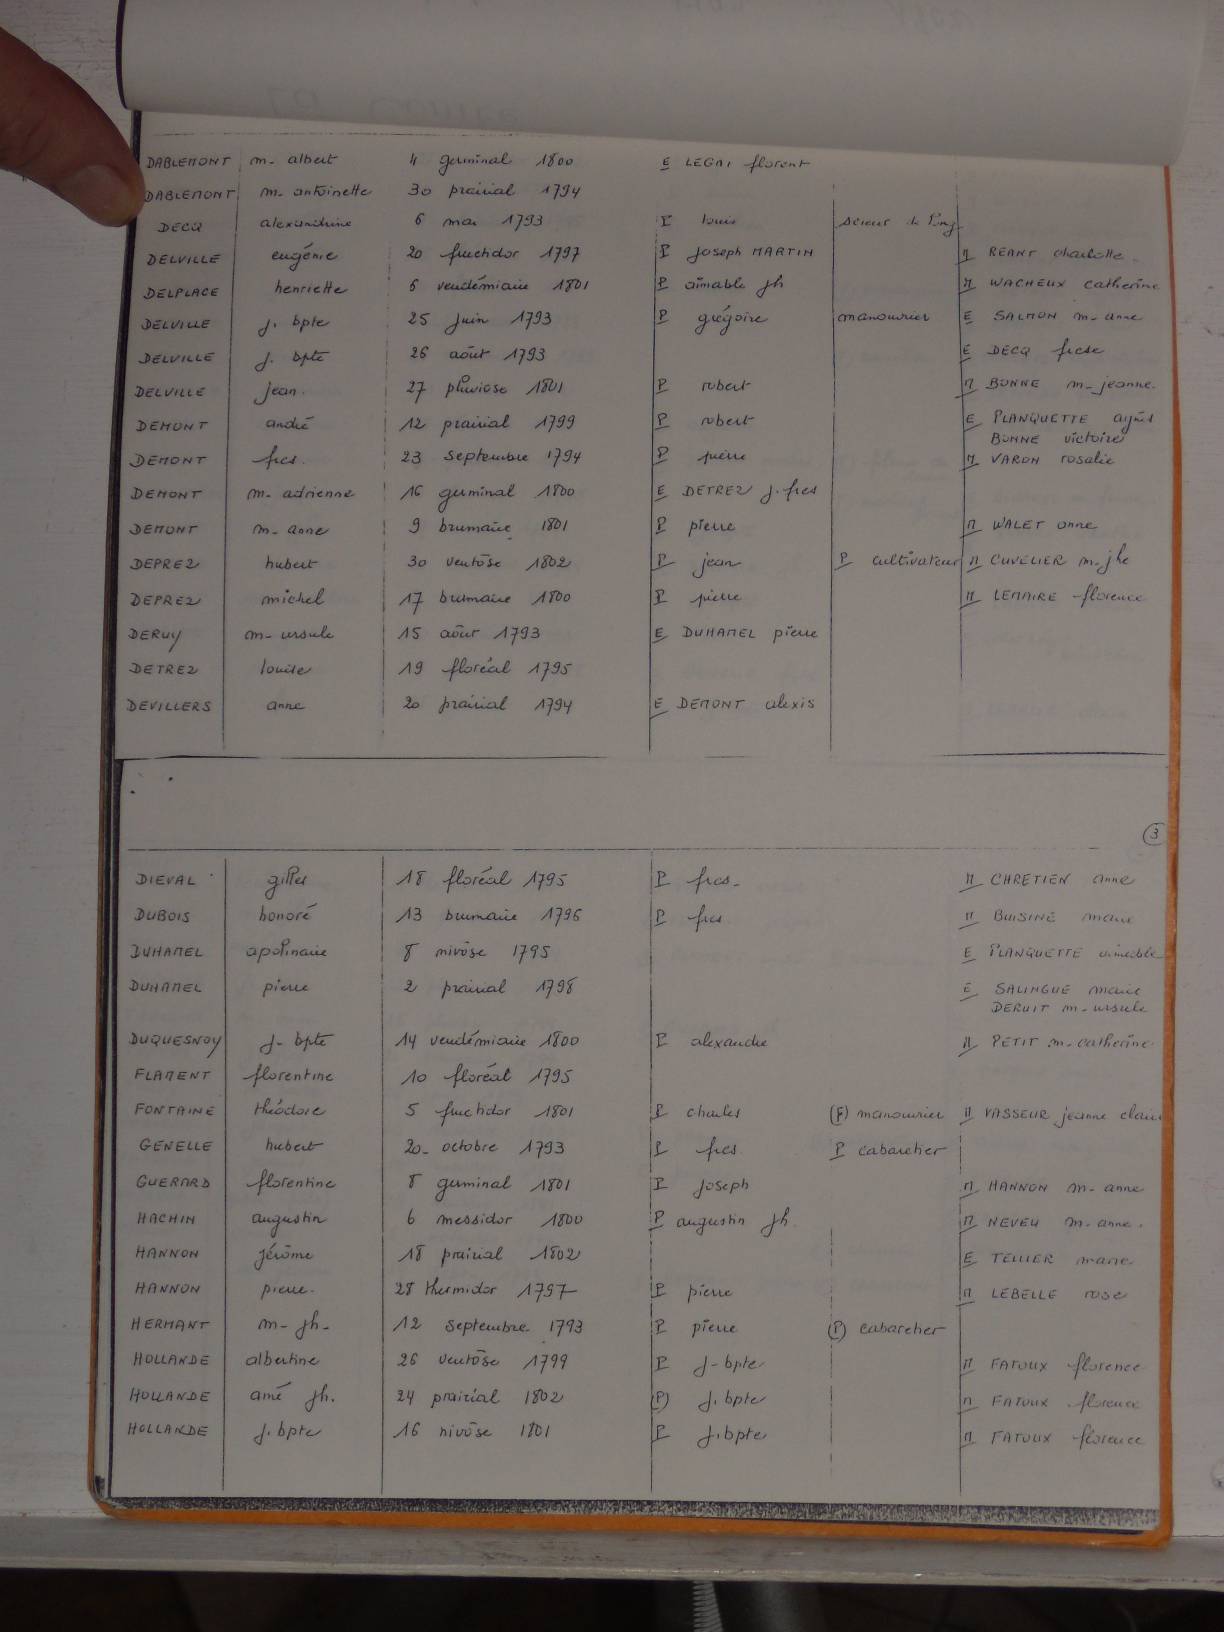 DABLEMONT m. albert 4 germinal 1800 E LEGAI florent
DABLEMONT m. antoinette 30 prairial 1794
DECQ alexandrine 6 mai 1793 P louis scieur de long
DELVILLE eugénie 20 fructidor 1797 P joseph MARTIN M REANT charlotte
DELPLACE henriette 5 vendémiaire 1801 P aimable jh M WACHEUX catherine
DELVILLE j. bpte 25 juin 1793 P grégoire manouvrier E SALMON m. anne
DELVILLE j. bpte 26 août 1793 E DECQ frcse
DELVILLE jean. 27 pluviose 1801 P robert M BONNE m. jeanne.
DEMONT andré 12 prairial 1799 P robert E PLANQUETTE agnès
BONNE victoire
DEMONT frcs. 23 septembre 1794 P pierre M VARON rosalie
DEMONT m. adrienne 16 germinal 1800 E DETREZ j. frcs
DEMONT m. anne 9 brumaire 1801 P pierre M WALET anne
DEPREZ hubert 30 ventôse 1802 P jean P cultivateur M CUVELIER m. jhe
DEPREZ michel 17 brumaire 1800 P pierre M LEMAIRE florence
DERUY m. ursule 15 août 1793 E DUHAMEL pierre
DETREZ louise 19 floréal 1795
DEVILLERS anne 20 prairial 1794 E DEMONT alexis
3
DIEVAL gilles 18 floréal 1795 P frcs. M CHRETIEN anne
DUBOIS honoré 13 brumaire 1796 P frcs M BUISINE marie
DUHAMEL apolinaire 8 nivôse 1795 E PLANQUETTE aimable
DUHAMEL pierre 2 prairial 1798 E SALINGUE marie
DERUIT m. ursule
DUQUESNOY j. bpte 14 vendémiaire 1800 P alexandre M PETIT m. catherine
FLAMENT florentine 10 floréal 1795
FONTAINE théodore 5 fructidor 1801 P charles (P) manouvrier M VASSEUR jeanne claire
GENELLE hubert 20 octobre 1793 P frcs P cabaretier
GUERARD florentine 8 germinal 1801 P joseph M HANNON m. anne
HACHIN augustin 6 messidor 1800 P augustin jh. M NEVEU m. anne.
HANNON jérôme 18 prairial 1802 E TELLIER marie
HANNON pierre. 28 thermidor 1797 P pierre M LEBELLE rose
HERMANT m. jh. 12 septembre 1793 P pierre (P) cabaretier
HOLLANDE albertine 26 ventôse 1799 P j. bpte M FATOUX florence
HOLLANDE amé jh. 24 prairial 1802 (P) j. bpte M FATOUX florence
HOLLANDE j. bpte 16 nivôse 1801 P j. bpte M FATOUX florence